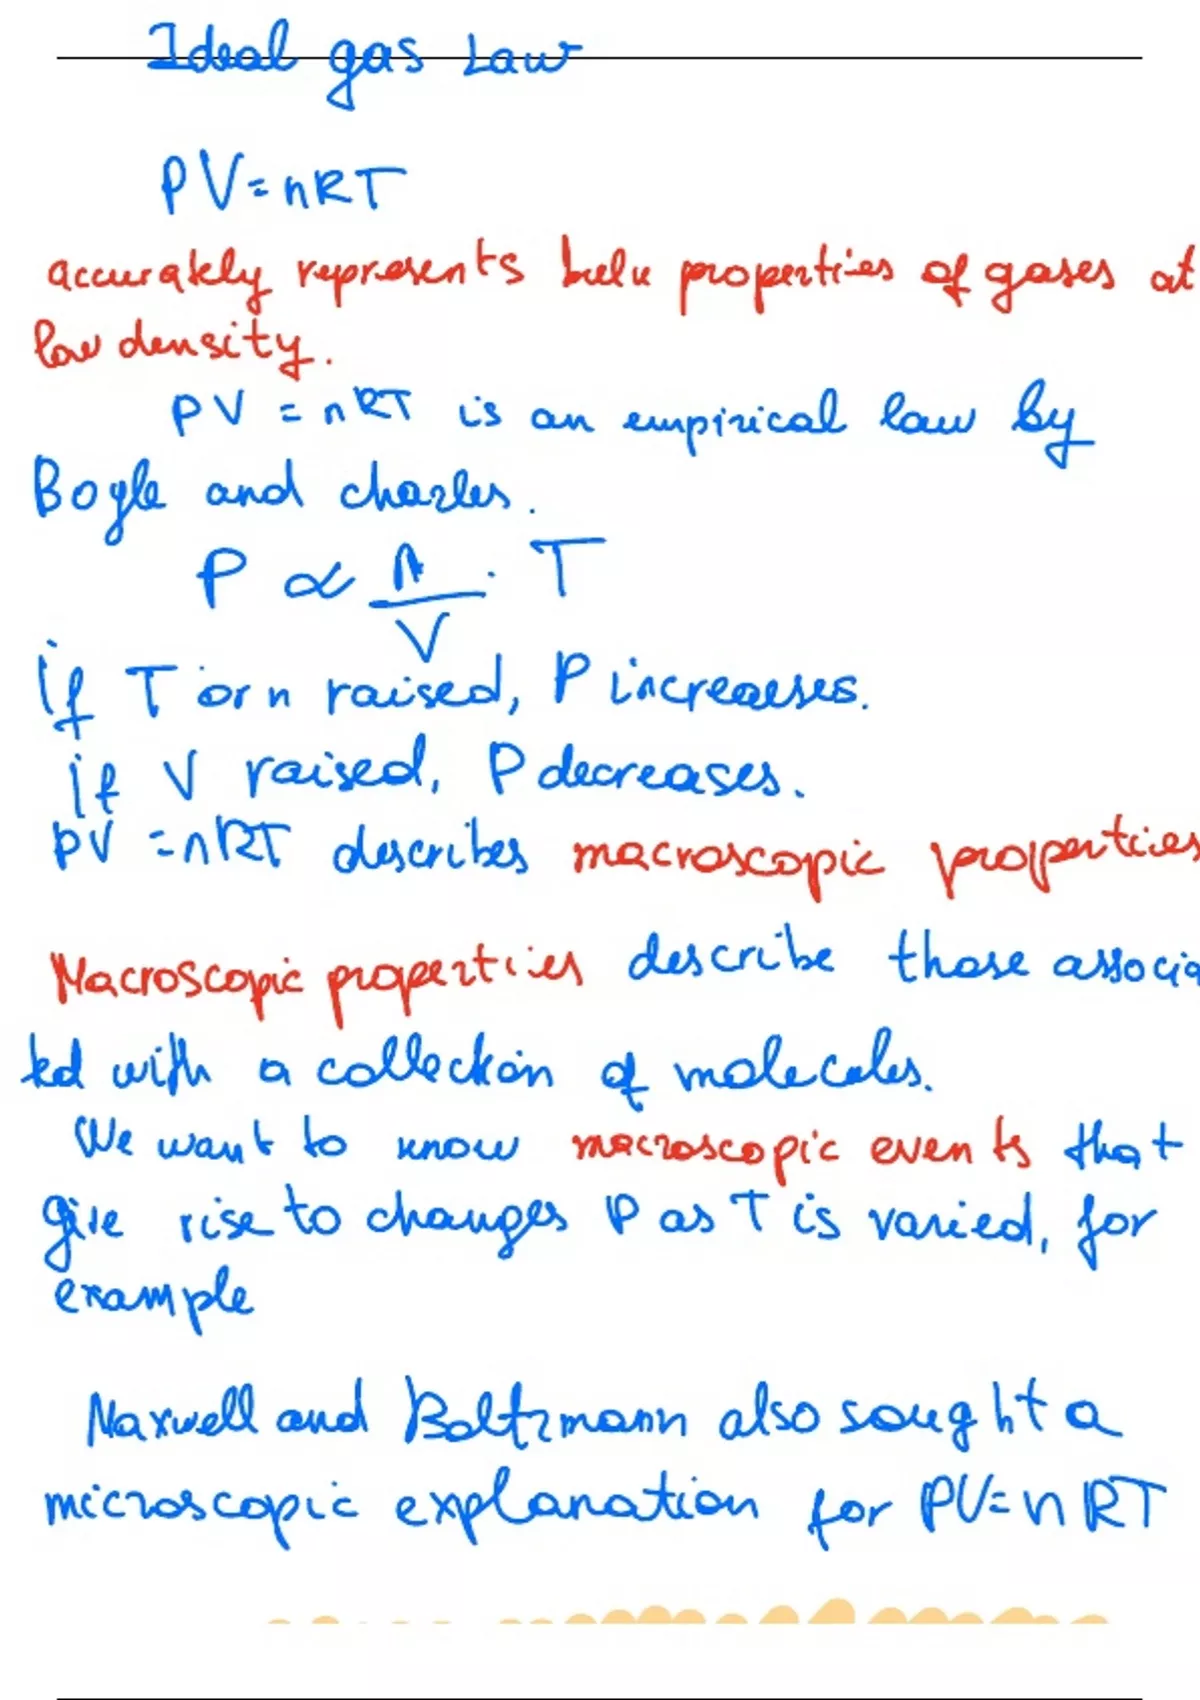 Ideal gas Law
PV=nRT
accurately represents bulk properties of gases at
low density.
PV = nRT is an empirical law by
Boyle and charles.
P ∝ n/V · T
if T or n raised, P increaeses.
if V raised, P decreases.
PV =nRT describes macroscopic properties
Macroscopic properties describe those associa
ted with a collection of molecules.
We want to know macroscopic events that
give rise to changes P as T is varied, for
example
Maxwell and Boltzmann also sought a
microscopic explanation for PV=nRT